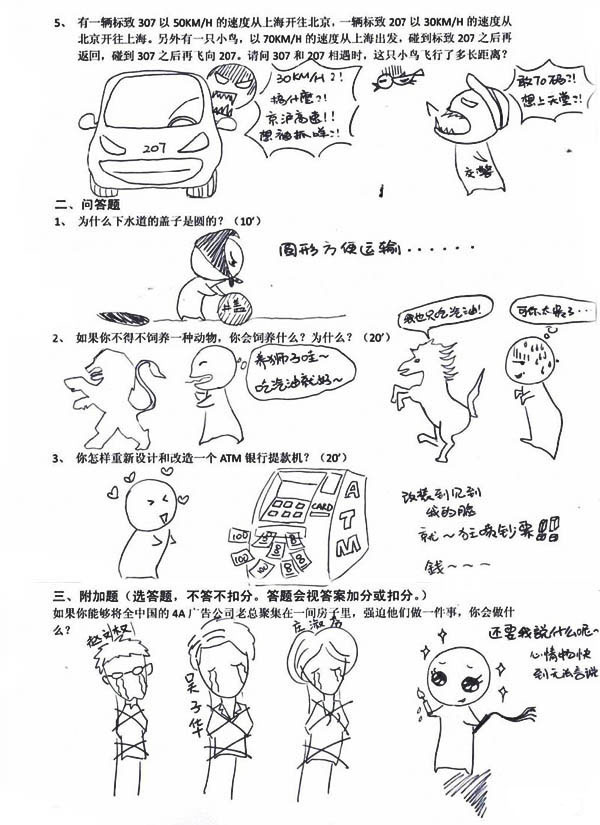 5、 有一辆标致 307 以 50KM/H 的速度从上海开往北京，一辆标致 207 以 30KM/H 的速度从
北京开往上海。另外有一只小鸟，以 70KM/H 的速度从上海出发，碰到标致 207 之后再
返回，碰到 307 之后再飞向 207。请问 307 和 207 相遇时，这只小鸟飞行了多长距离？
207
30KM/H？！
搞什麼？！
京沪高速！！
想被抓咩？！
敢70码？！
想上天堂？！
交警
二、问答题
1、 为什么下水道的盖子是圆的？（10'）
圆形方便运输······
井盖
2、 如果你不得不饲养一种动物，你会饲养什么？为什么？（20'）
养狮子哇~
吃汽油就好~
我也只吃汽油！
可你太贵了···
3、 你怎样重新设计和改造一个 ATM 银行提款机？（20'）
CARD
ATM
100
100
改装到见到
我的脸
就~狂喷钞票!!!
錢~~~
三、附加题（选答题，不答不扣分。答题会视答案加分或扣分。）
如果你能够将全中国的 4A 广告公司老总聚集在一间房子里，强迫他们做一件事，你会做什
么？
吴子华
庄淑芬
还要我说什么呢~
心情愉快
到无法言说